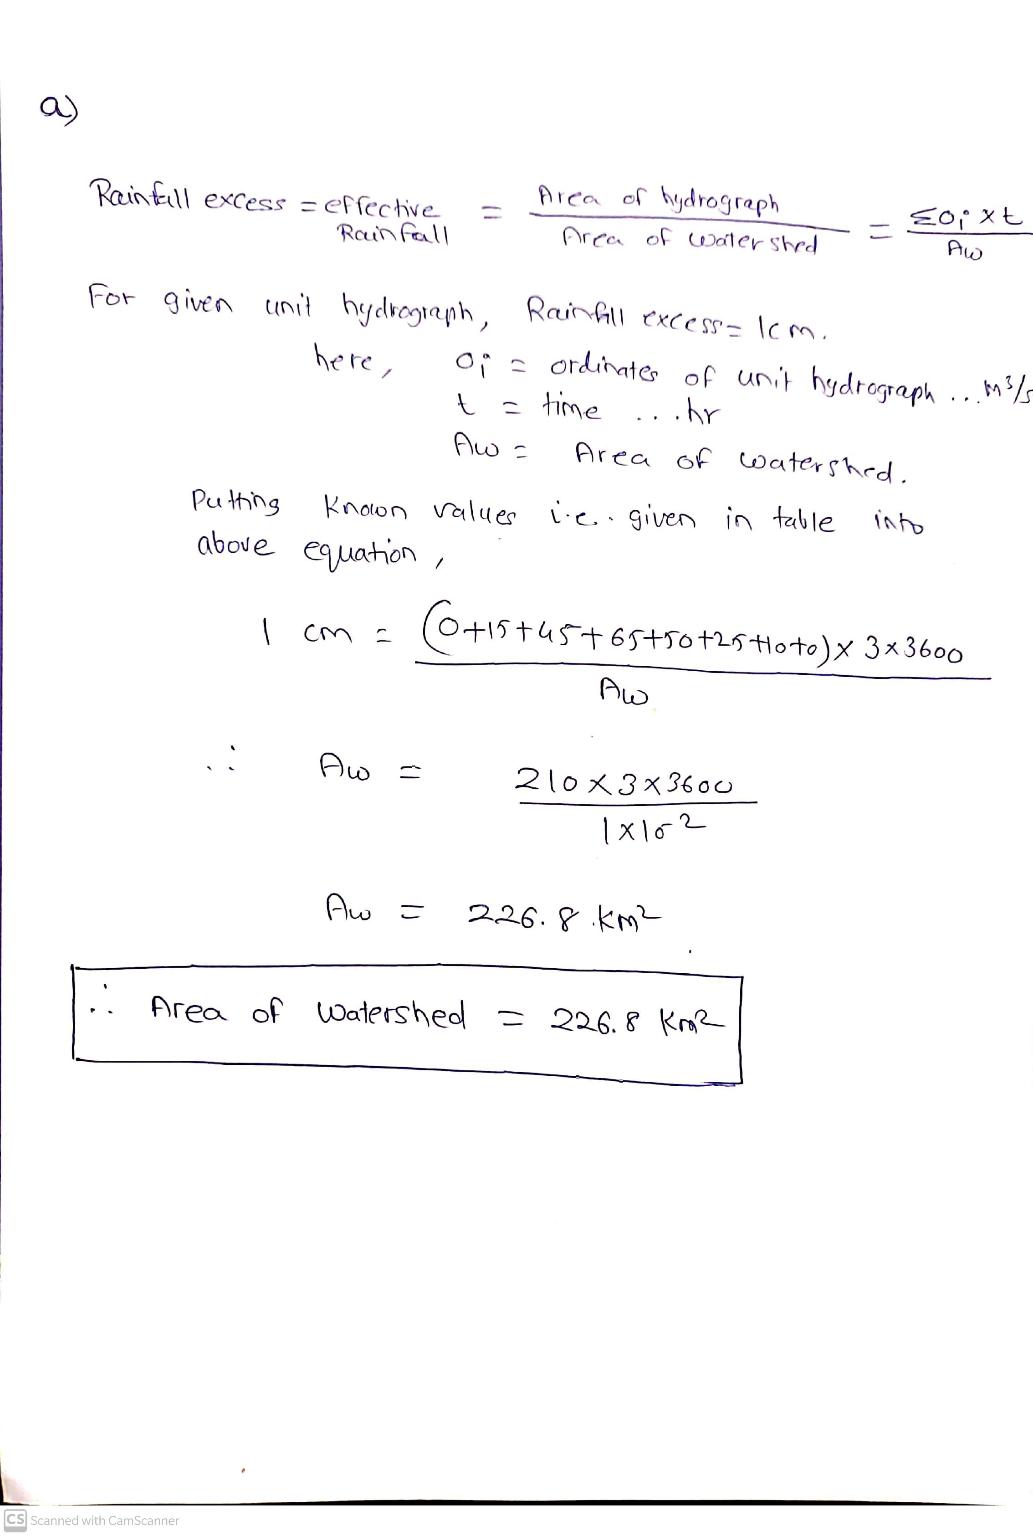 a)
Rainfall excess = effective Rainfall = Area of hydrograph / Area of watershed = ΣOi x t / Aw
For given unit hydrograph, Rainfall excess = 1cm.
here, Oi = ordinates of unit hydrograph ... m³/s
t = time ...hr
Aw = Area of watershed.
Putting known values i.e. given in table into
above equation,
1 cm = (0+15+45+65+50+25+10+0) x 3x3600 / Aw
∴ Aw = 210 x 3 x 3600 / 1x10⁻²
Aw = 226.8 km²
∴ Area of watershed = 226.8 Km²
CS Scanned with CamScanner